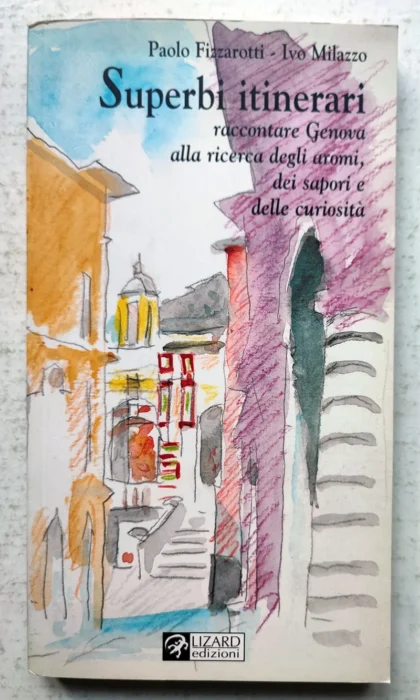 Paolo Fizzarotti - Ivo Milazzo
Superbi itinerari
raccontare Genova
alla ricerca degli aromi,
dei sapori e
delle curiosità
LIZARD
edizioni